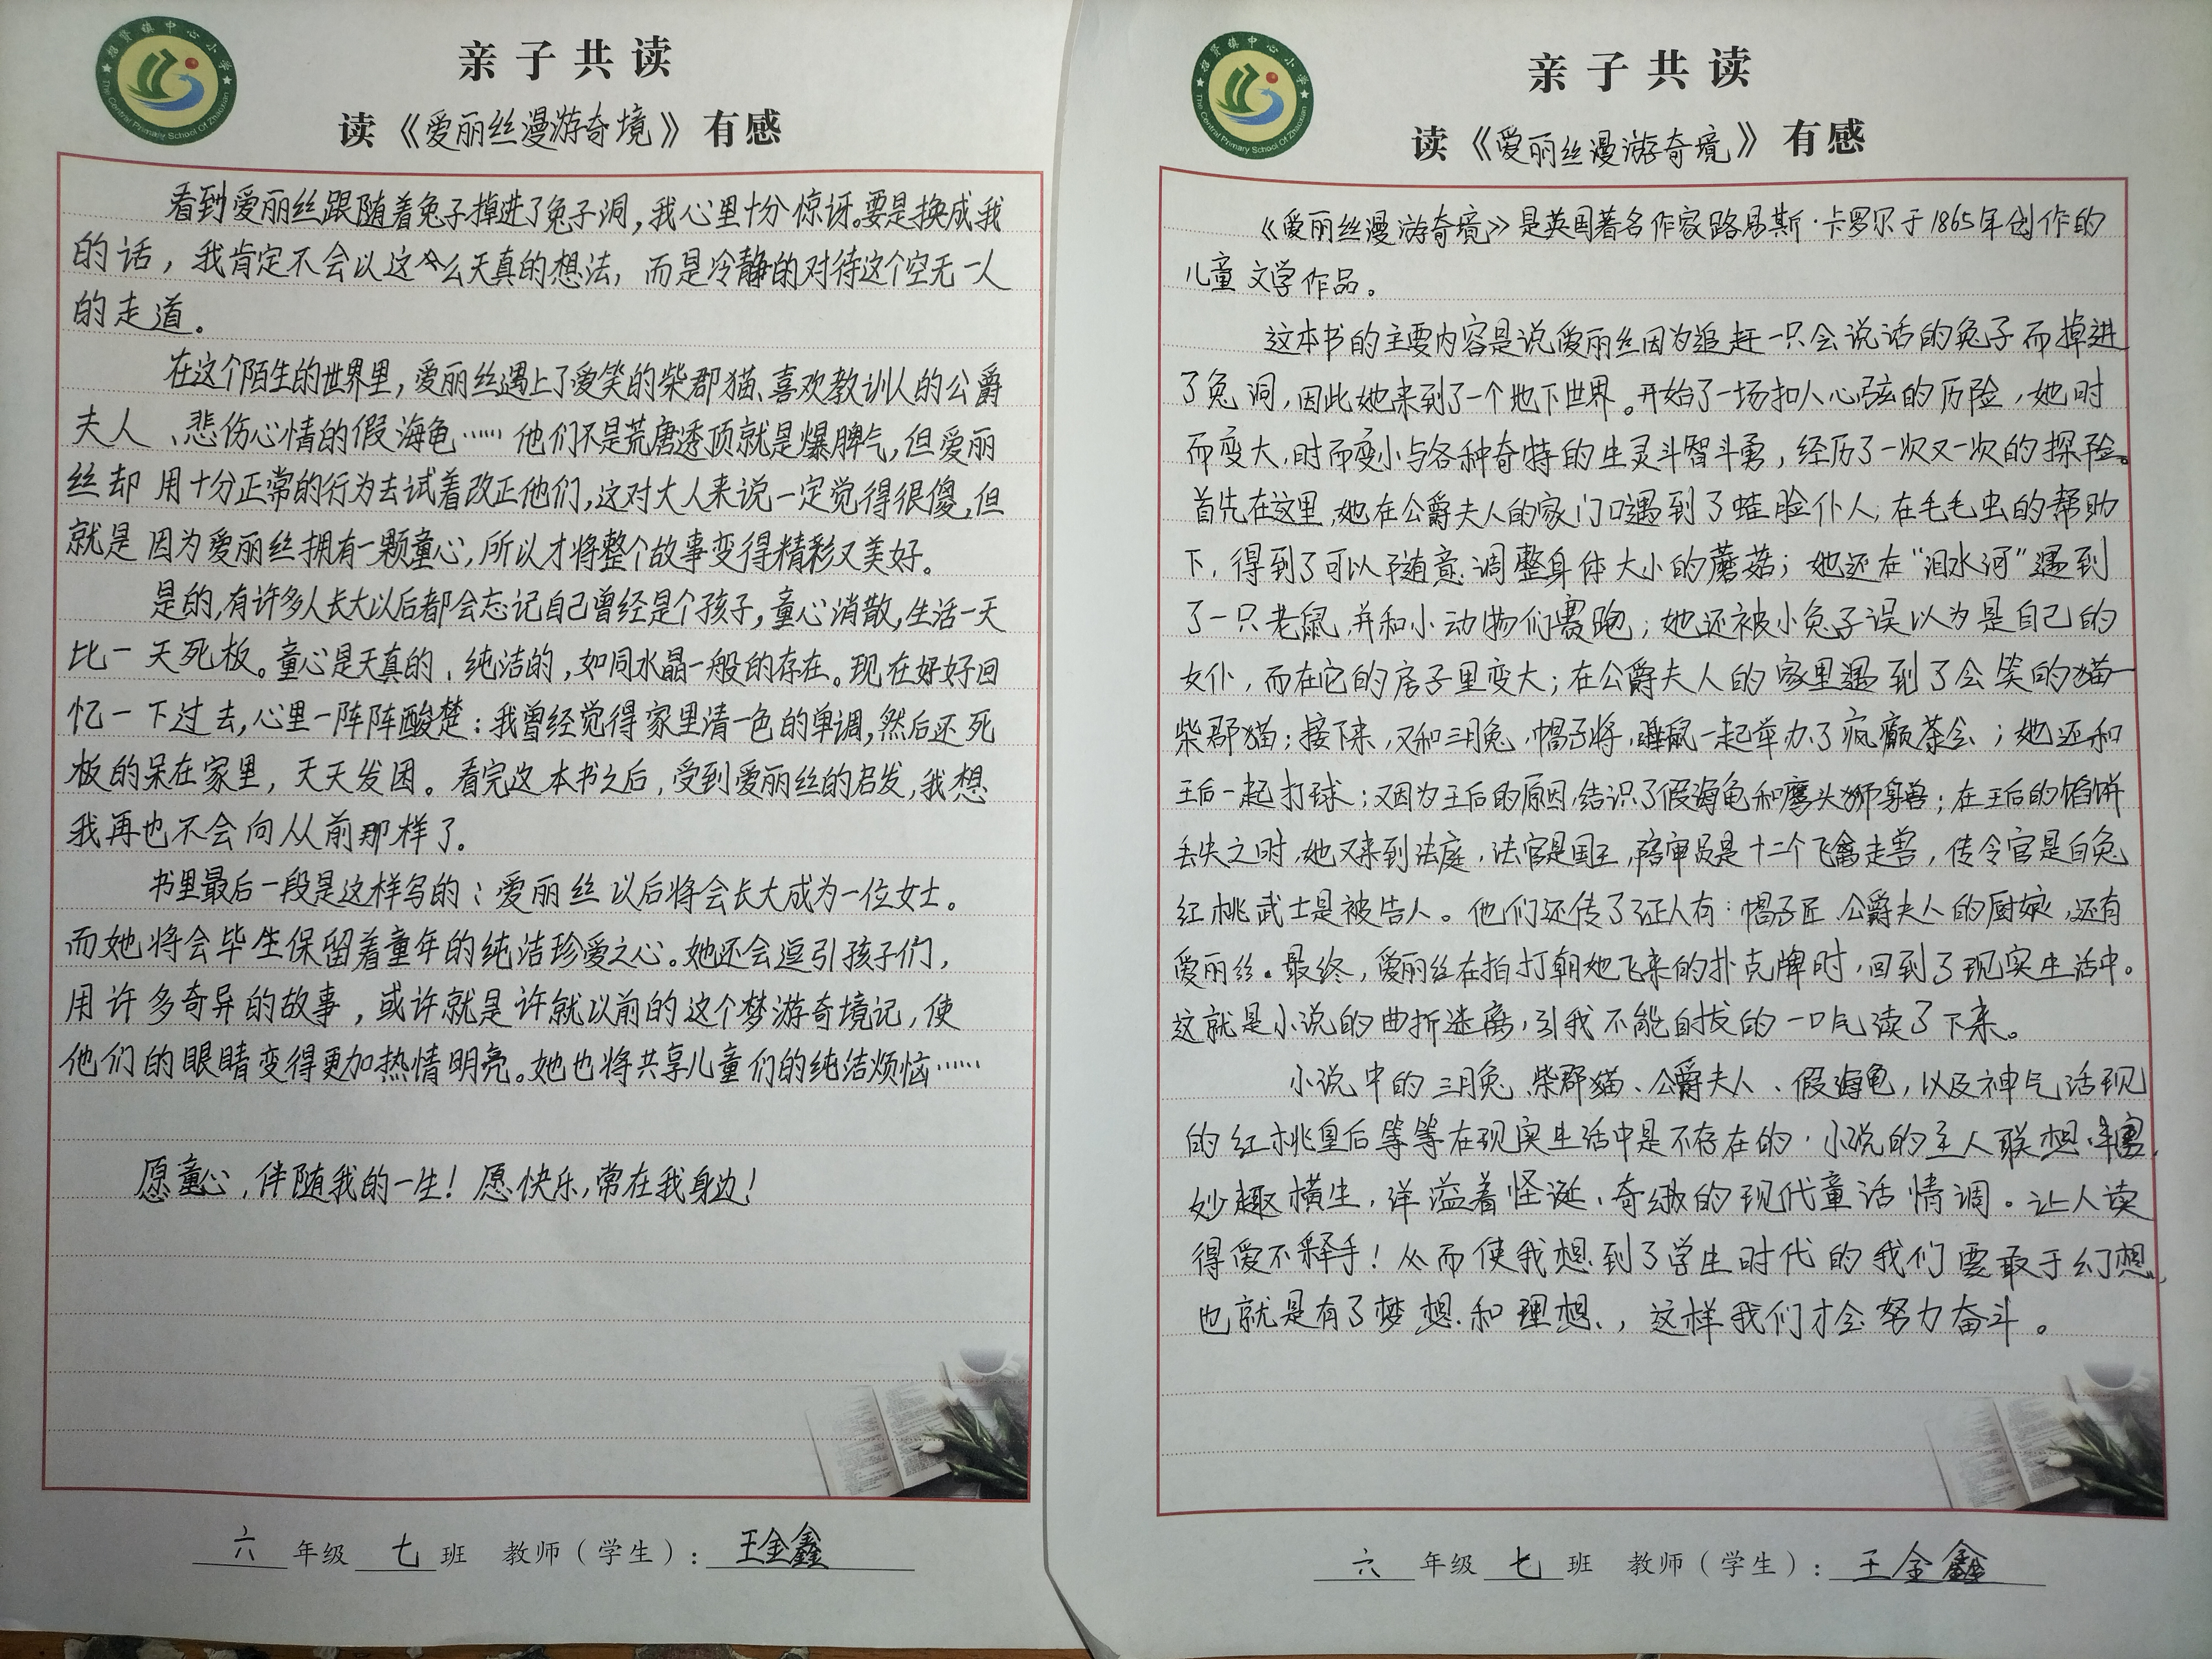 招贤镇中心小学
The Central Primary School Of Zhaoxian
亲子共读
读《爱丽丝漫游奇境》有感
看到爱丽丝跟随着兔子掉进了兔子洞，我心里十分惊讶。要是换成我
的话，我肯定不会以这么天真的想法，而是冷静的对待这个空无一人
的走道。
在这个陌生的世界里，爱丽丝遇上了爱笑的柴郡猫、喜欢教训人的公爵
夫人、悲伤心情的假海龟……他们不是荒唐透顶就是爆脾气，但爱丽
丝却用十分正常的行为去试着改正他们，这对大人来说一定觉得很傻，但
就是因为爱丽丝拥有一颗童心，所以才将整个故事变得精彩又美好。
是的，有许多人长大以后都会忘记自己曾经是个孩子，童心消散，生活一天
比一天死板。童心是天真的、纯洁的，如同水晶一般的存在。现在好好回
忆一下过去，心里一阵阵酸楚：我曾经觉得家里清一色的单调，然后还死
板的呆在家里，天天发困。看完这本书之后，受到爱丽丝的启发，我想
我再也不会向从前那样了。
书里最后一段是这样写的：爱丽丝以后将会长大成为一位女士。
而她将会毕生保留着童年的纯洁珍爱之心。她还会逗引孩子们，
用许多奇异的故事，或许就是许就以前的这个梦游奇境记，使
他们的眼睛变得更加热情明亮。她也将共享儿童们的纯洁烦恼……
愿童心，伴随我的一生！愿快乐，常在我身边！
六年级七班 教师（学生）：王金鑫
招贤镇中心小学
The Central Primary School Of Zhaoxian
亲子共读
读《爱丽丝漫游奇境》有感
《爱丽丝漫游奇境》是英国著名作家路易斯·卡罗尔于1865年创作的
儿童文学作品。
这本书的主要内容是说爱丽丝因为追赶一只会说话的兔子而掉进
了兔洞，因此她来到了一个地下世界。开始了一场扣人心弦的历险，她时
而变大，时而变小与各种奇特的生灵斗智斗勇，经历了一次又一次的探险。
首先在这里，她在公爵夫人的家门口遇到了蛙脸仆人；在毛毛虫的帮助
下，得到了可以随意调整身体大小的蘑菇；她还在“泪水河”遇到
了一只老鼠，并和小动物们赛跑；她还被小兔子误以为是自己的
女仆，而在它的房子里变大；在公爵夫人的家里遇到了会笑的猫—
柴郡猫；接下来，又和三月兔，帽子将，睡鼠一起举办了疯癫茶会；她还和
王后一起打球；又因为王后的原因，结识了假海龟和鹰头狮身兽；在王后的馅饼
丢失之时，她又来到法庭，法官是国王，陪审员是十二个飞禽走兽，传令官是白兔
红桃武士是被告人。他们还传了证人有：帽子匠，公爵夫人的厨娘，还有
爱丽丝。最终，爱丽丝在拍打朝她飞来的扑克牌时，回到了现实生活中。
这就是小说的曲折迷离，引我不能自拔的一口气读了下来。
小说中的三月兔、柴郡猫、公爵夫人、假海龟，以及神气活现
的红桃皇后等等在现实生活中是不存在的，小说的主人联想丰富，
妙趣横生，洋溢着怪诞、奇缈的现代童话情调。让人读
得爱不释手！从而使我想到了学生时代的我们要敢于幻想，
也就是有了梦想和理想，这样我们才会努力奋斗。
六年级七班 教师（学生）：王金鑫